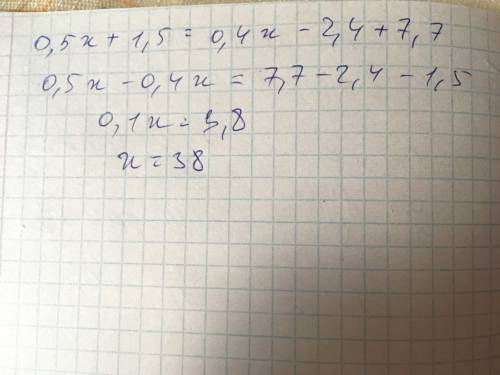 0,5x + 1,5 = 0,4x - 2,4 + 7,7
0,5x - 0,4x = 7,7 - 2,4 - 1,5
0,1x = 3,8
x = 38